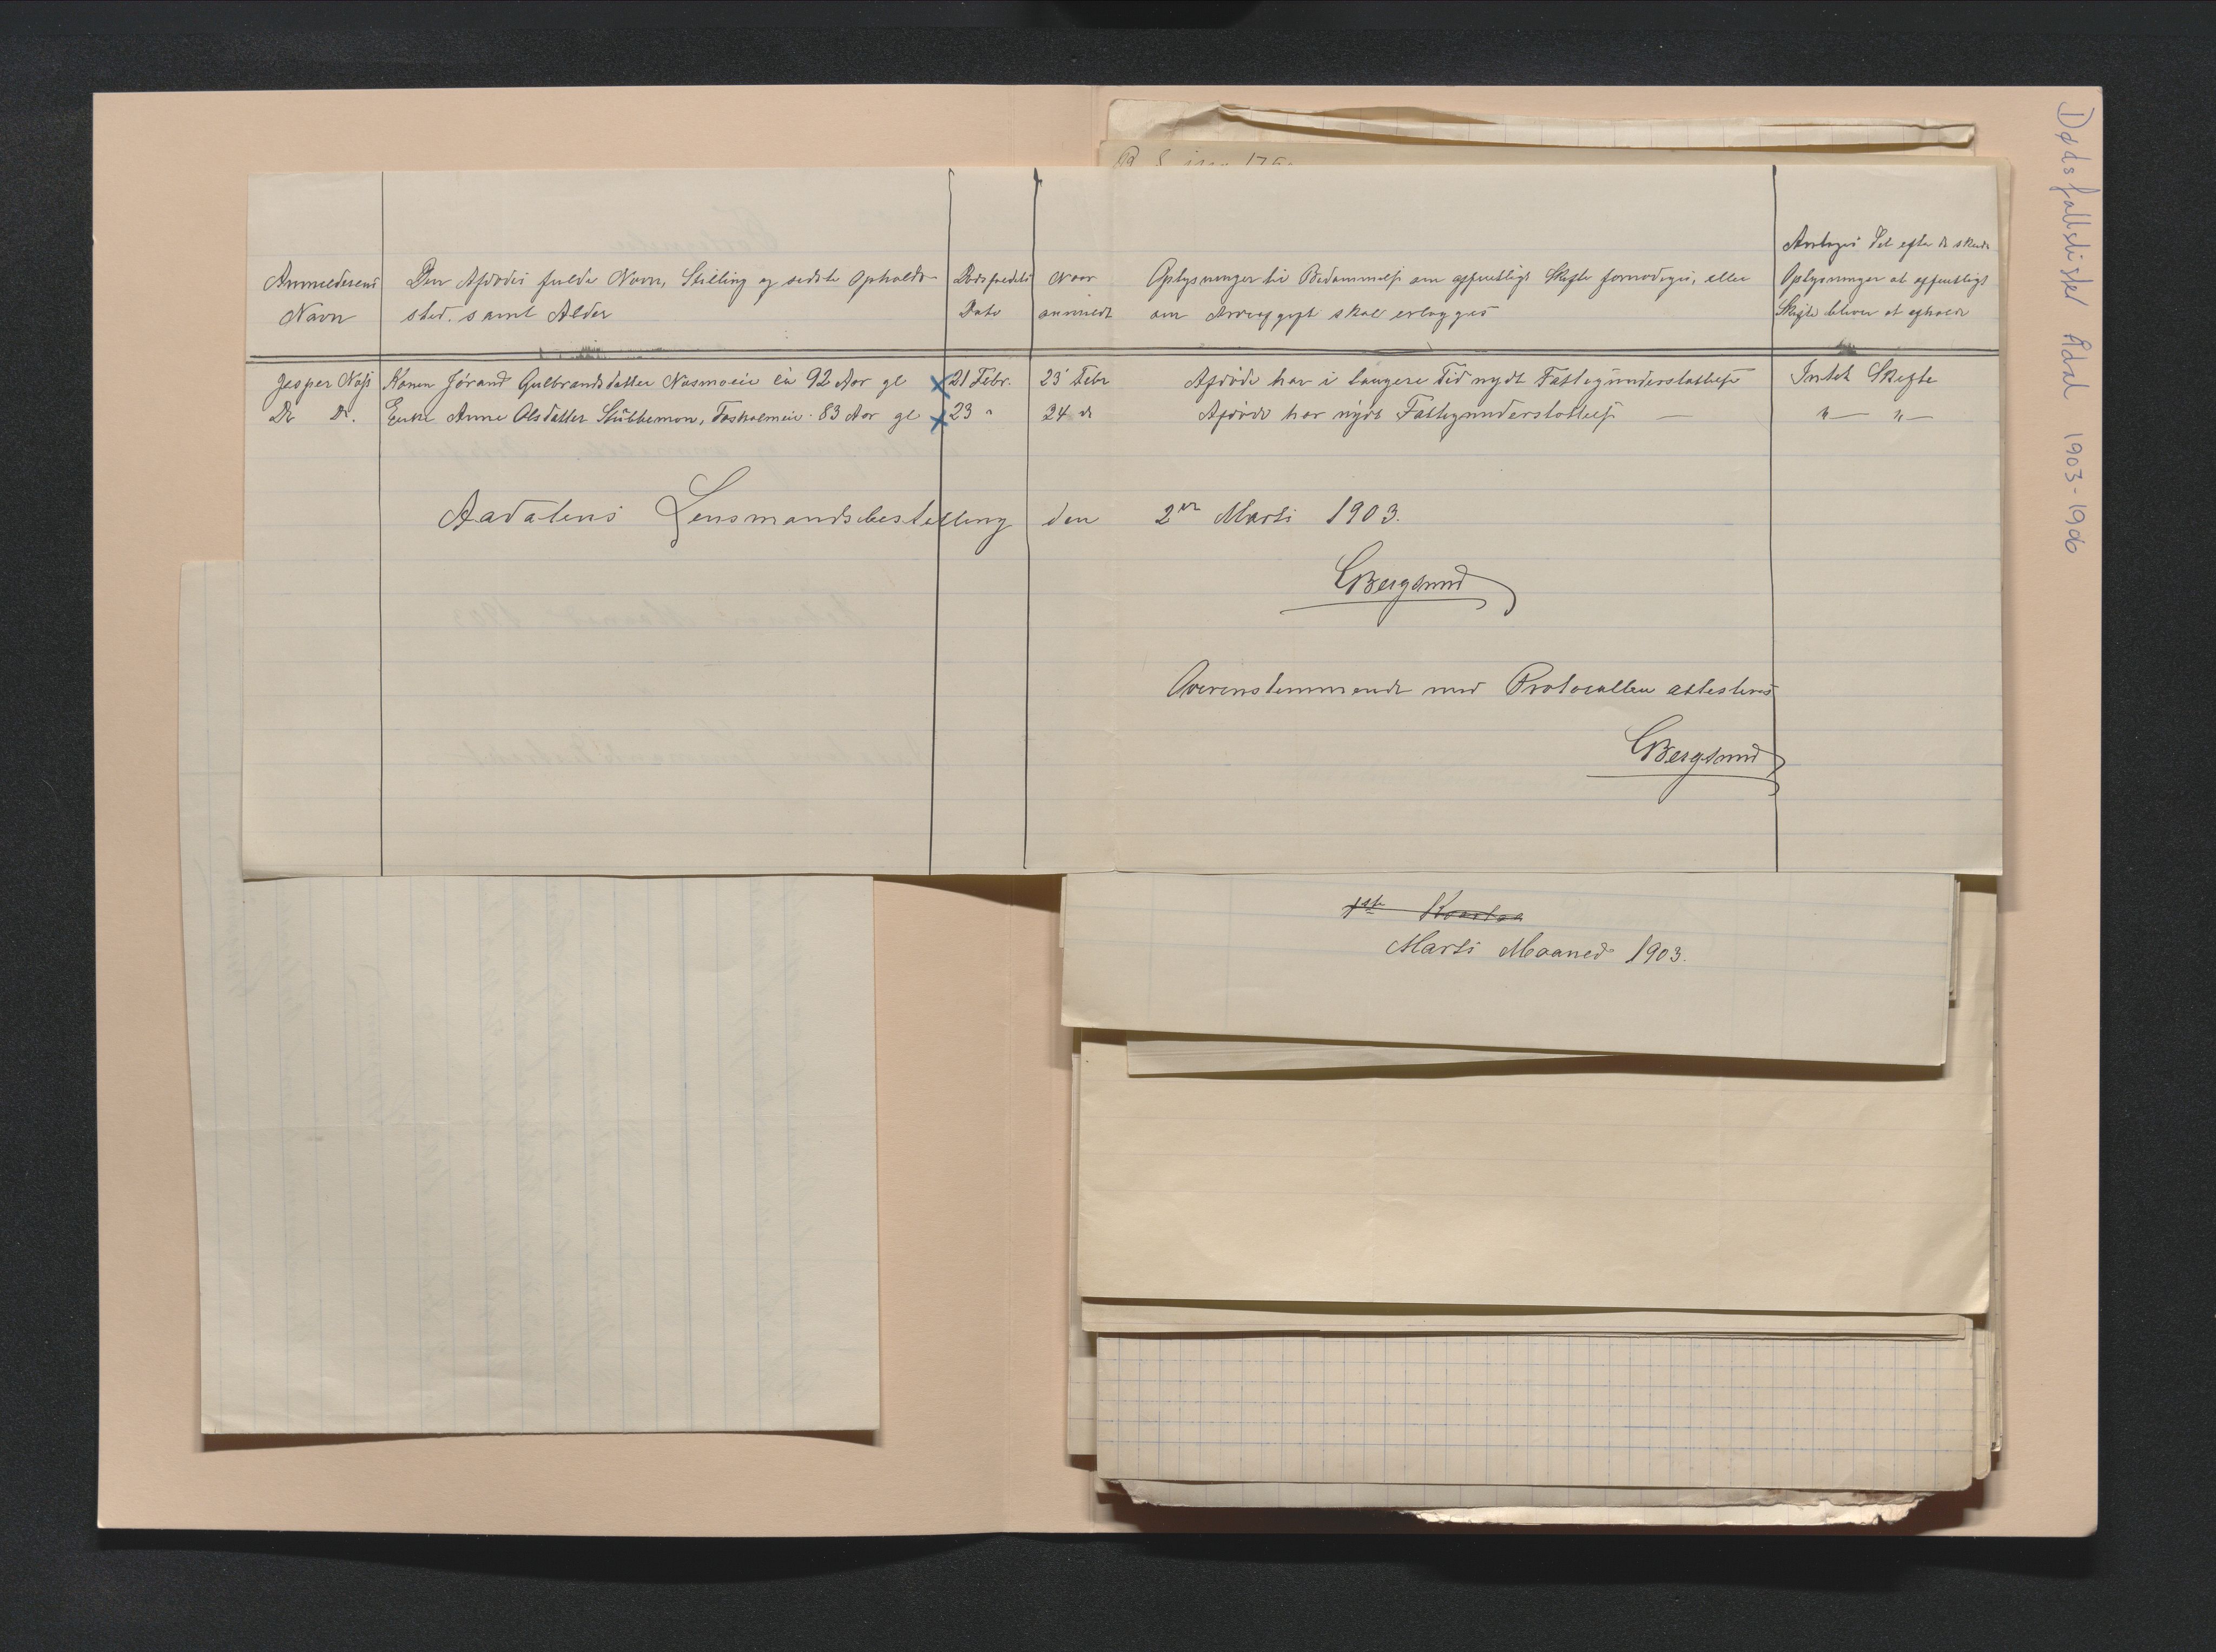 Dødsfallslister Ådal 1903-1906
Anmelderens
Navn
Den Afdødes fulde Navn, Stilling og sidste Opholds-
sted. samt Alder
Dødsfaldets
Dato
Naar
anmeldt
Oplysninger til Bedømmelse om offentligt Skifte fornødiges, eller
om Arveafgift skal erlægges
Antages det efter de skeede
Oplysninger at offentligt
Skifte bliver at afholde
Jesper Næss Konen Jørand Gulbrandsdatter Næsmoeie 92 Aar gl 21 Febr. 23 Febr Afdøde har i længere Tid nydt Fattigunderstøttelse Intet Skifte
Do Do. Enke Anne Olsdatter Stubbemon, 83 Aar gl 23 " 24 do Afdøde har nydt Fattigunderstøttelse — " — " —
Aadalens Lensmandsbestilling den 2den Marts 1903.
CBergsund
Overenstemmende med Protocollen attesteres
CBergsund
1ste Kvartal
Marts Maaned 1903.